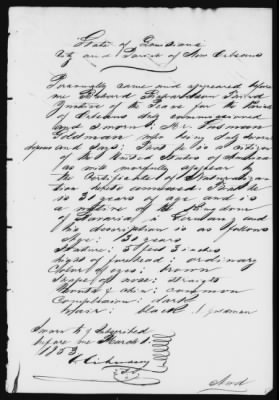 State of Louisiana
City and Parish of New Orleans
Personally came and appeared before
me Richard Richardson Second
Justice of the Peace for the Parish
of Orleans duly commissioned
and sworn Mr.
who being duly sworn
deposes and says: That he is a citizen
of the United States of America
as will more fully appear by
the Certificate of Naturaliza-
tion hereto annexed. That he
is 30 years of age and is
a native of the Kingdom
of Bavaria, Germany and
his description is as follows
Age: 30 years
Stature: 5 feet 3 inches
hight of forehead: ordinary
Color of eyes: brown
Shape of nose: straight
Mouth & chin: common
Complexion: dark
Hair: black
Sworn to & subscribed
before me March 1.
1853
And